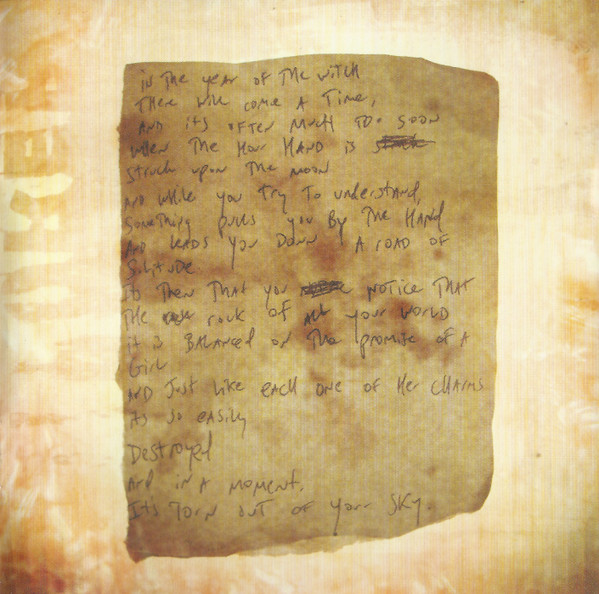 in The year of The witch
There will come A Time,
AND its often Much Too soon
when The Hour HAND is
struck upon The moon
AND while you Try To understand,
Something pulls you By The Hand
AND LEADS you Down A road of
Solitude.
Its Then That you notice That
The rock of All your world
it is Balanced on The promise of A
Girl
AND Just like each one of Her charms
its so easily
Destroyed
And in A moment,
It's Torn out of your sky.